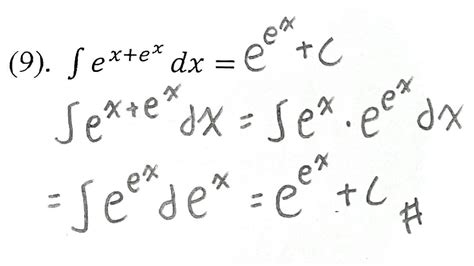 (9). ∫ e^{x+e^x} dx = e^{e^x} + C
∫ e^{x+e^x} dx = ∫ e^x · e^{e^x} dx
= ∫ e^{e^x} d e^x = e^{e^x} + C #